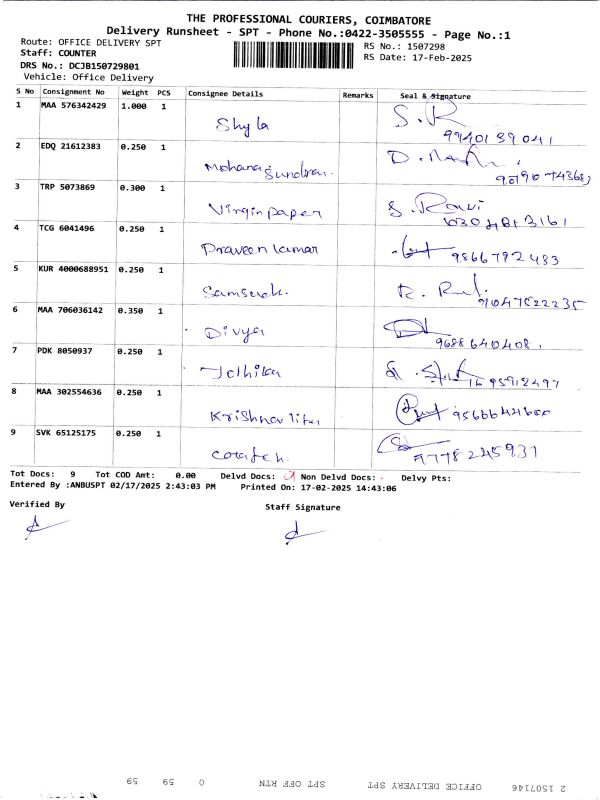 THE PROFESSIONAL COURIERS, COIMBATORE
Delivery Runsheet - SPT - Phone No.:0422-3505555 - Page No.:1
Route: OFFICE DELIVERY SPT
RS No.: 1507298
Staff: COUNTER
RS Date: 17-Feb-2025
DRS No.: DCJB150729801
Vehicle: Office Delivery
S No Consignment No Weight PCS Consignee Details Remarks Seal & Signature
1 MAA 576342429 1.000 1 Shyla S. R
9940139041
2 EDQ 21612383 0.250 1 Mohana Sundram.
3 TRP 5073869 0.300 1 Virgin paper S. Ravi
4 TCG 6041496 0.250 1 Praveen kumar
9866792433
5 KUR 4000688951 0.250 1
9047822235
6 MAA 706036142 0.350 1 Divya
9688640408.
7 PDK 8050937 0.250 1 Jothika
8 MAA 302554636 0.250 1
9 SVK 65125175 0.250 1
9778245931
Tot Docs: 9 Tot COD Amt: 0.00 Delvd Docs: 9 Non Delvd Docs: - Delvy Pts:
Entered By :ANBUSPT 02/17/2025 2:43:03 PM Printed On: 17-02-2025 14:43:06
Verified By Staff Signature
2 1507146 OFFICE DELIVERY SPT SPT OFF RTN 0 59 59